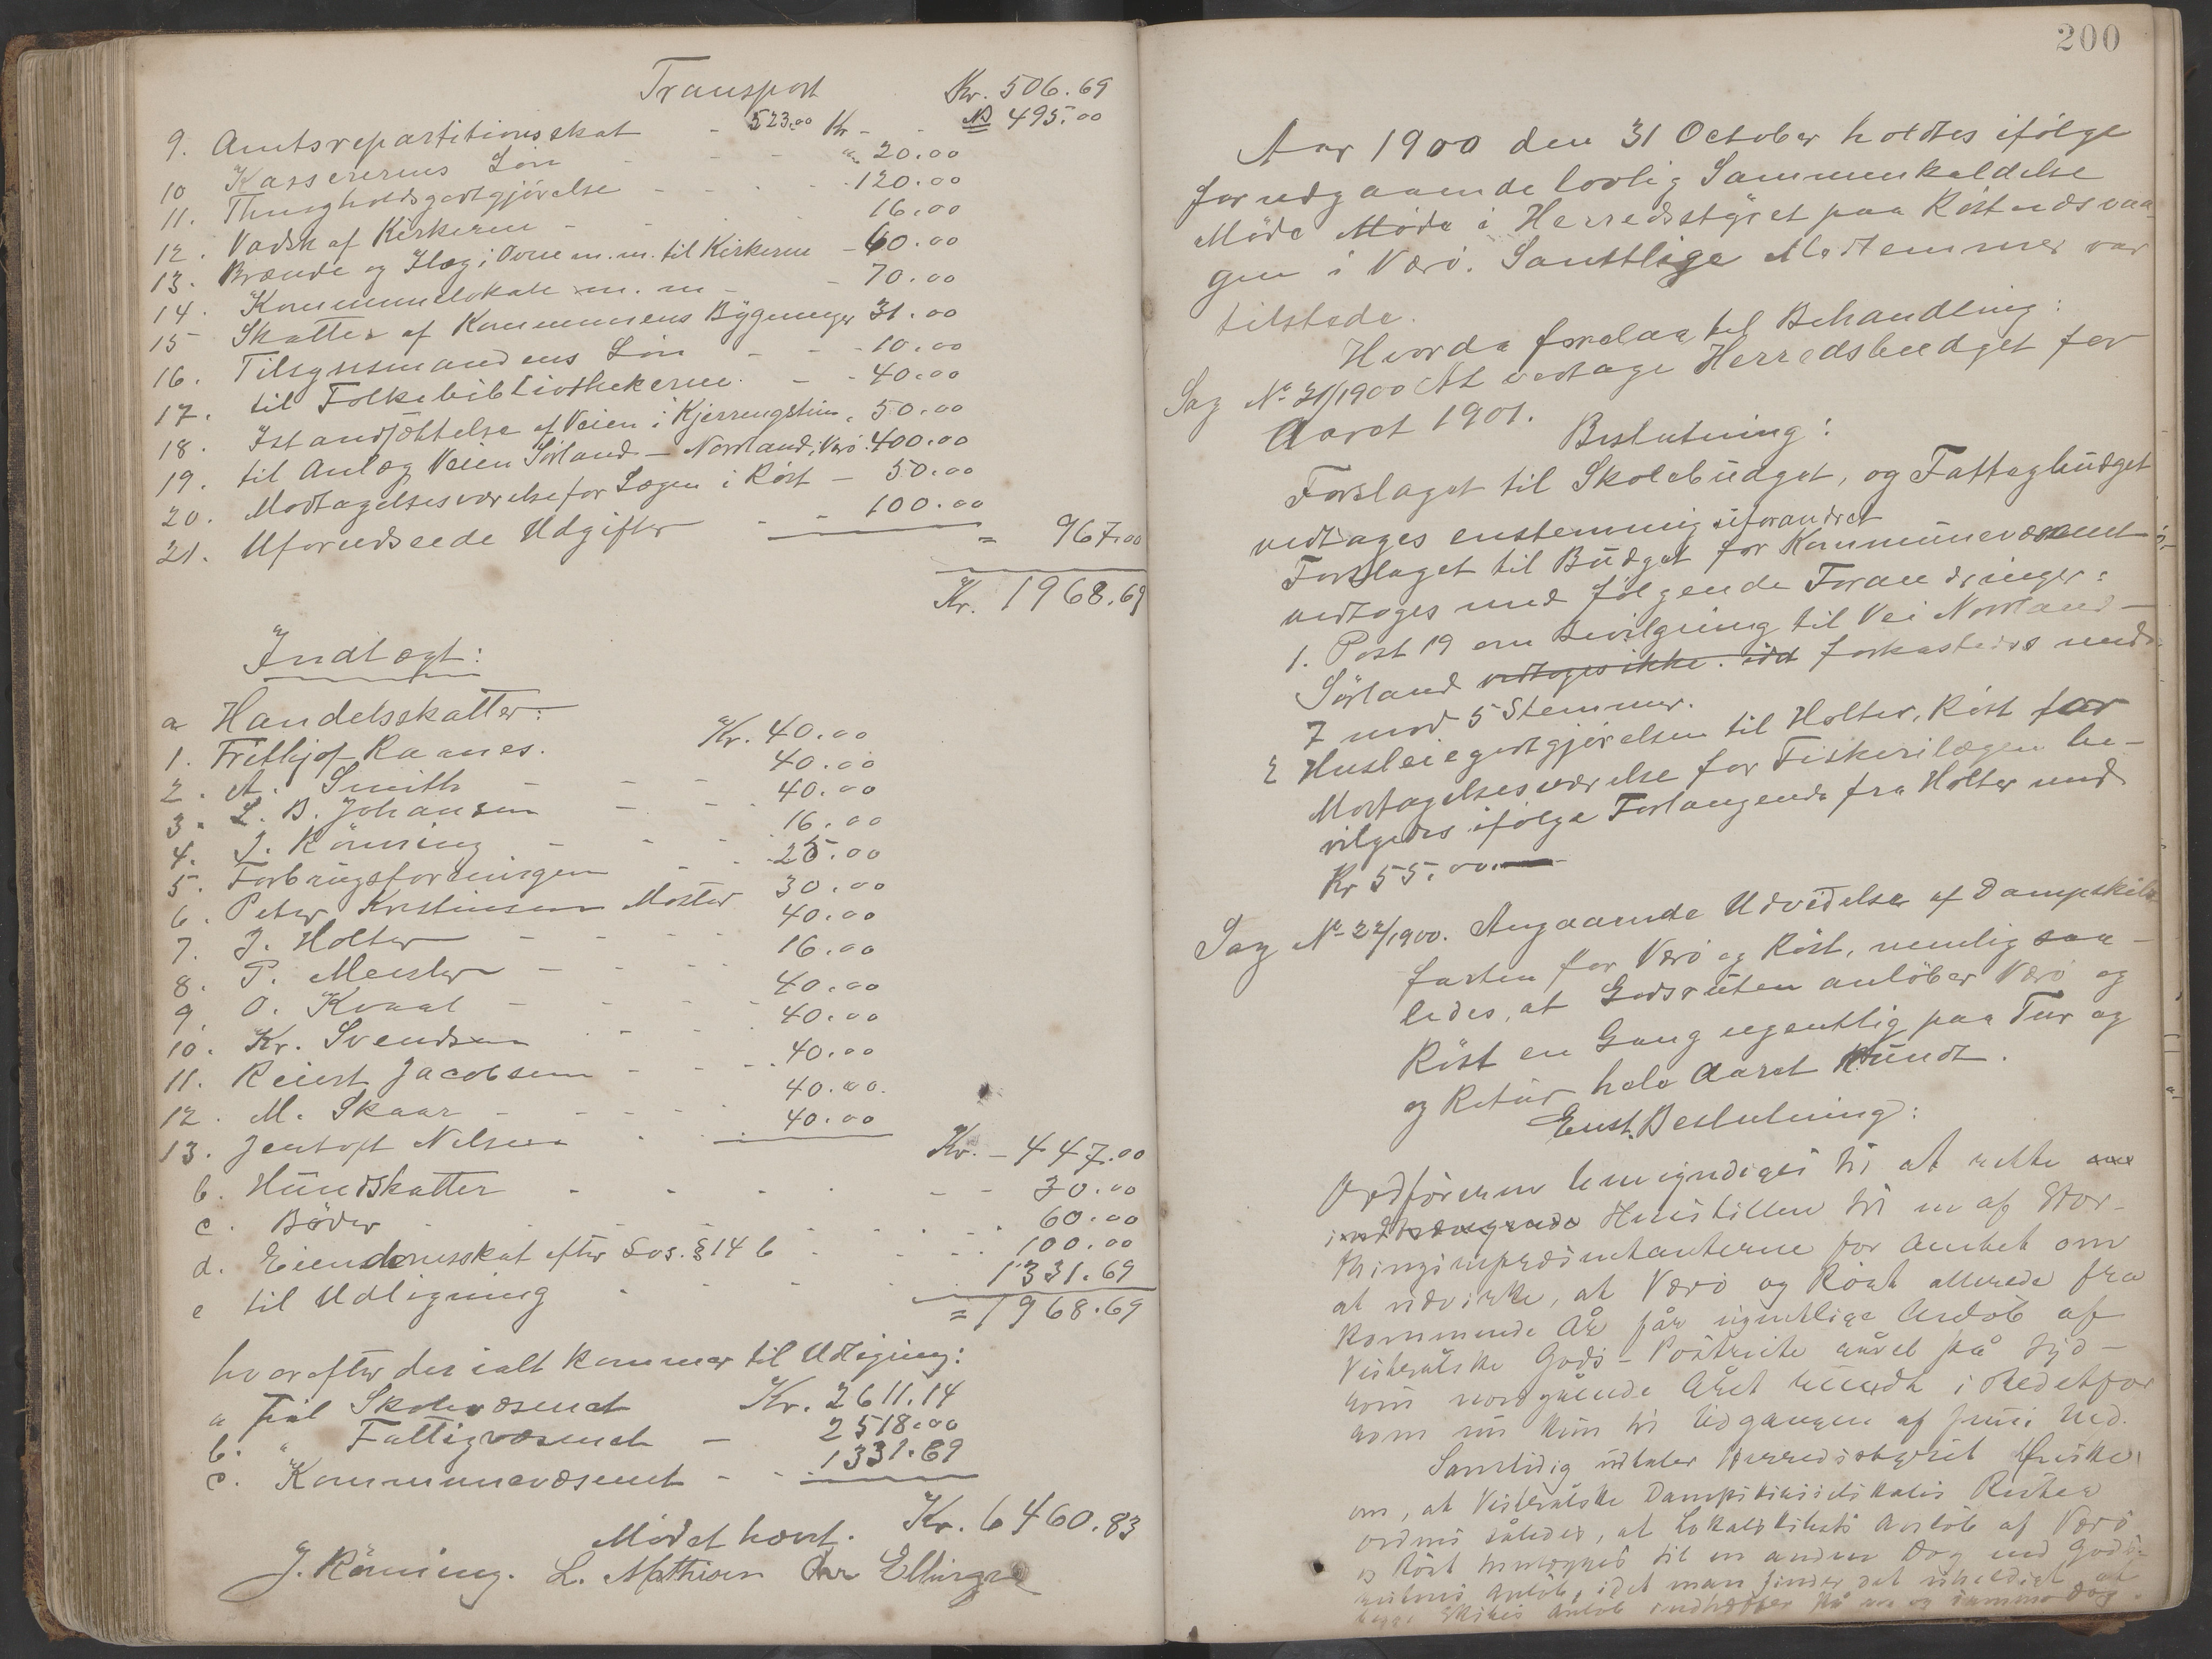 Transport Kr. 506.69
9. Amtsrepartitionsskat - 523.00 Kr - - № 495.00
10 Kassererens Løn - - - " 20.00
11. Thingholdsgodtgjörelse - - - 120.00
12. Vadsk af Kirkerne - - 16.00
13. Brænde og Ilæg i Ovne m.m. til Kirkerne - 60.00
14. Kommunelokale m. m - - 70.00
15 Skatter af Kommunens Bÿgninger 31.00
16. Tilsynsmandens Løn - - - 10.00
17. til Folkebibliothekerne. - - 40.00
18. Istandsættelse af Veien i Kjerringstien. 50.00
19. til Anlæg Veien Sörland - Norrland, Værö. 400.00
20. Modtagelsesværelse for Lægen i Röst - 50.00
21. Uforudseede Udgifter - - 100.00
= 967.00
Kr. 1968.69
Indtægt:
a Handelsskatter:
1. Frithjof Raanes. Kr. 40.00
2. A. Smith - - - 40.00
3. L. B. Johansen - - 40.00
4. J. Rönning - - - 16.00
5. Forbrugsforeningen - - 25.00
6. Peter Kristiansen Mostad 30.00
7. J. Holter - - - 40.00
8. P. Meister - - - 16.00
9. O. Kvaal - - - 40.00
10. Kr. Svendsen - - 40.00
11. Reiert Jacobsen - - - 40.00
12. M. Skaar - - - - 40.00.
13. Jentoft Nilsen - - 40.00
Kr. - 447.00
b. Hundskatter - - - - - 30.00
c. Böder - - - - 60.00
d. Eiendomsskat efter Lov. § 14 b - - - 100.00
e til Udligning - - - 1331.69
= 1968.69
hvorefter der ialt kommer til Udligning:
a Til Skolevæsenet Kr. 2611.14
b. " Fattigvæsenet - 2518.00
c. " Kommunevæsenet - - 1331.69
Kr. 6460.83
Mödet hævt.
J. Rönning. L. Mathisen Chr Ellingsen
200
Aar 1900 den 31 October holdtes ifölge
forudgaaende lovlig Sammenkaldelse
Möde Möde i Herredsstÿret paa Röstnesvaa-
gen i Værö. Samtlige Medlemmer var
tilstede.
Hvorda forelaa til Behandling:
Sag № 21/1900 At vedtage Herredsbudget for
Aaret 1901.
Beslutning:
Forslaget til Skolebudget, og Fattigbudget
vedtages enstemmig uforandret
Forslaget til Budget for Kommunevæsenet
vedtages med fölgende Forandringer:
1. Post 19 om Bevilgning til Vei Norrland-
Sörland vedtoges ikke. idet forkastedes med
7 mod 5 Stemmer.
2 Husleiegodtgjörelsen til Holter, Röst for
Modtagelsesværelse for Fiskerilægen be-
vilgedes ifölge Forlangende fra Holter med
Kr 55.00.
Sag № 22/1900. Angaaende Udvidelse af Dampskibs-
farten for Værö og Röst, nemlig saa-
ledes, at Godsruten anlöber Værö og
Röst en Gang ugentlig paa Tur og
og Retur hele Aaret Rundt.
Enst. Beslutning:
Ordföreren bemyndiges til at rette
indtrængende Henstillen til en af Stor-
thingsrepræsentanterne for Amtet om
at udvirke, at Værö og Röst allerede fra
kommende År får ugentlige Anløb af
Vesterålske Gods-Postrute såvel på syd-
som nordgående Året rundt i Stedetfor
som nu kun til Udgangen af Juni Md.
Samtidig udtaler Herredsstyret Önske
om, at Vesterålske Dampskibsselskabs Ruter
ordnes således, at Lokalskibets Anløb af Værö
og Röst henlægges til en anden Dag end Gods-
rutens Anløb, idet man finder det uheldigt, at
begge Skibes Anløb indtræffer på en og samme Dag.